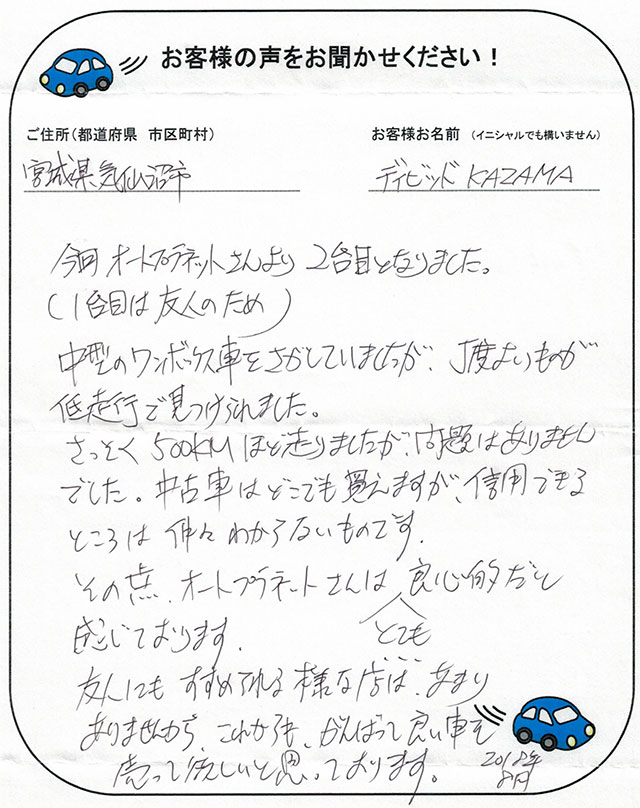 お客様の声をお聞かせください！
ご住所(都道府県 市区町村)
お客様お名前 (イニシャルでも構いません)
宮城県気仙沼市
デイビッド KAZAMA
今回オートプラネットさんより2台目となりました。
(1台目は友人のため)
中型のワンボックス車をさがしていましたが、丁度よいものが
低走行で見つけられました。
さっそく500KMほど走りましたが、問題はありません
でした。中古車はどこでも買えますが、信用できる
ところは仲々わからないものです。
その点、オートプラネットさんは良心的だと
感じております。
とても
友人にもすすめられる様な店は、あまり
ありませんから、これからも、がんばって良い車を
売って欲しいと思っております。
2012年
8月